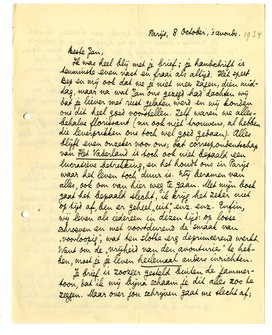 Parijs, 8 October, 's avonds. 1934
Beste Jan,
Ik was heel blij met je brief; je handschrift is
tenminste even vast en fraai als altijd. Het speet
Bep en mij ook dat we je niet meer zagen, dien mid-
dag, maar na wat Jan ons gezegd had dachten wij
dat je liever met rust gelaten werd en wij konden
ons dit heel goed voorstellen. Zelf waren we alles-
behalve florissant (nu ook niet trouwens, al hebben
die leverprikken ons toch wel goed gedaan). Alles
blijft even onzeker voor ons, dat correspondentschap
van Het Vaderland is ook ook niet bepaald een
lucratieve betrekking, en het houdt ons in Parijs
waar het leven toch duur is. Wij beramen van
alles, ook om van hier weg te gaan. Met mijn boek
gaat het bepaald slecht, ik krijg het zeker niet
op tijd af, ben er geheel "uit", enz. enz. Enfin,
wij leven als iedereen in dezen tijd: op losse
schroeven en met voortdurend de smaak van
"voorloopig", wat ten slotte erg deprimeerend werkt.
Want om de "vrijheid van den avonturier" te heb-
ben, moet je je leven heelemaal anders inrichten.
Je brief is zoozeer gesteld buiten de jammer-
toon, dat ik mij bijna schaam je dit alles zoo te
zeggen. Maar over jou schrijven gaat me slecht af;